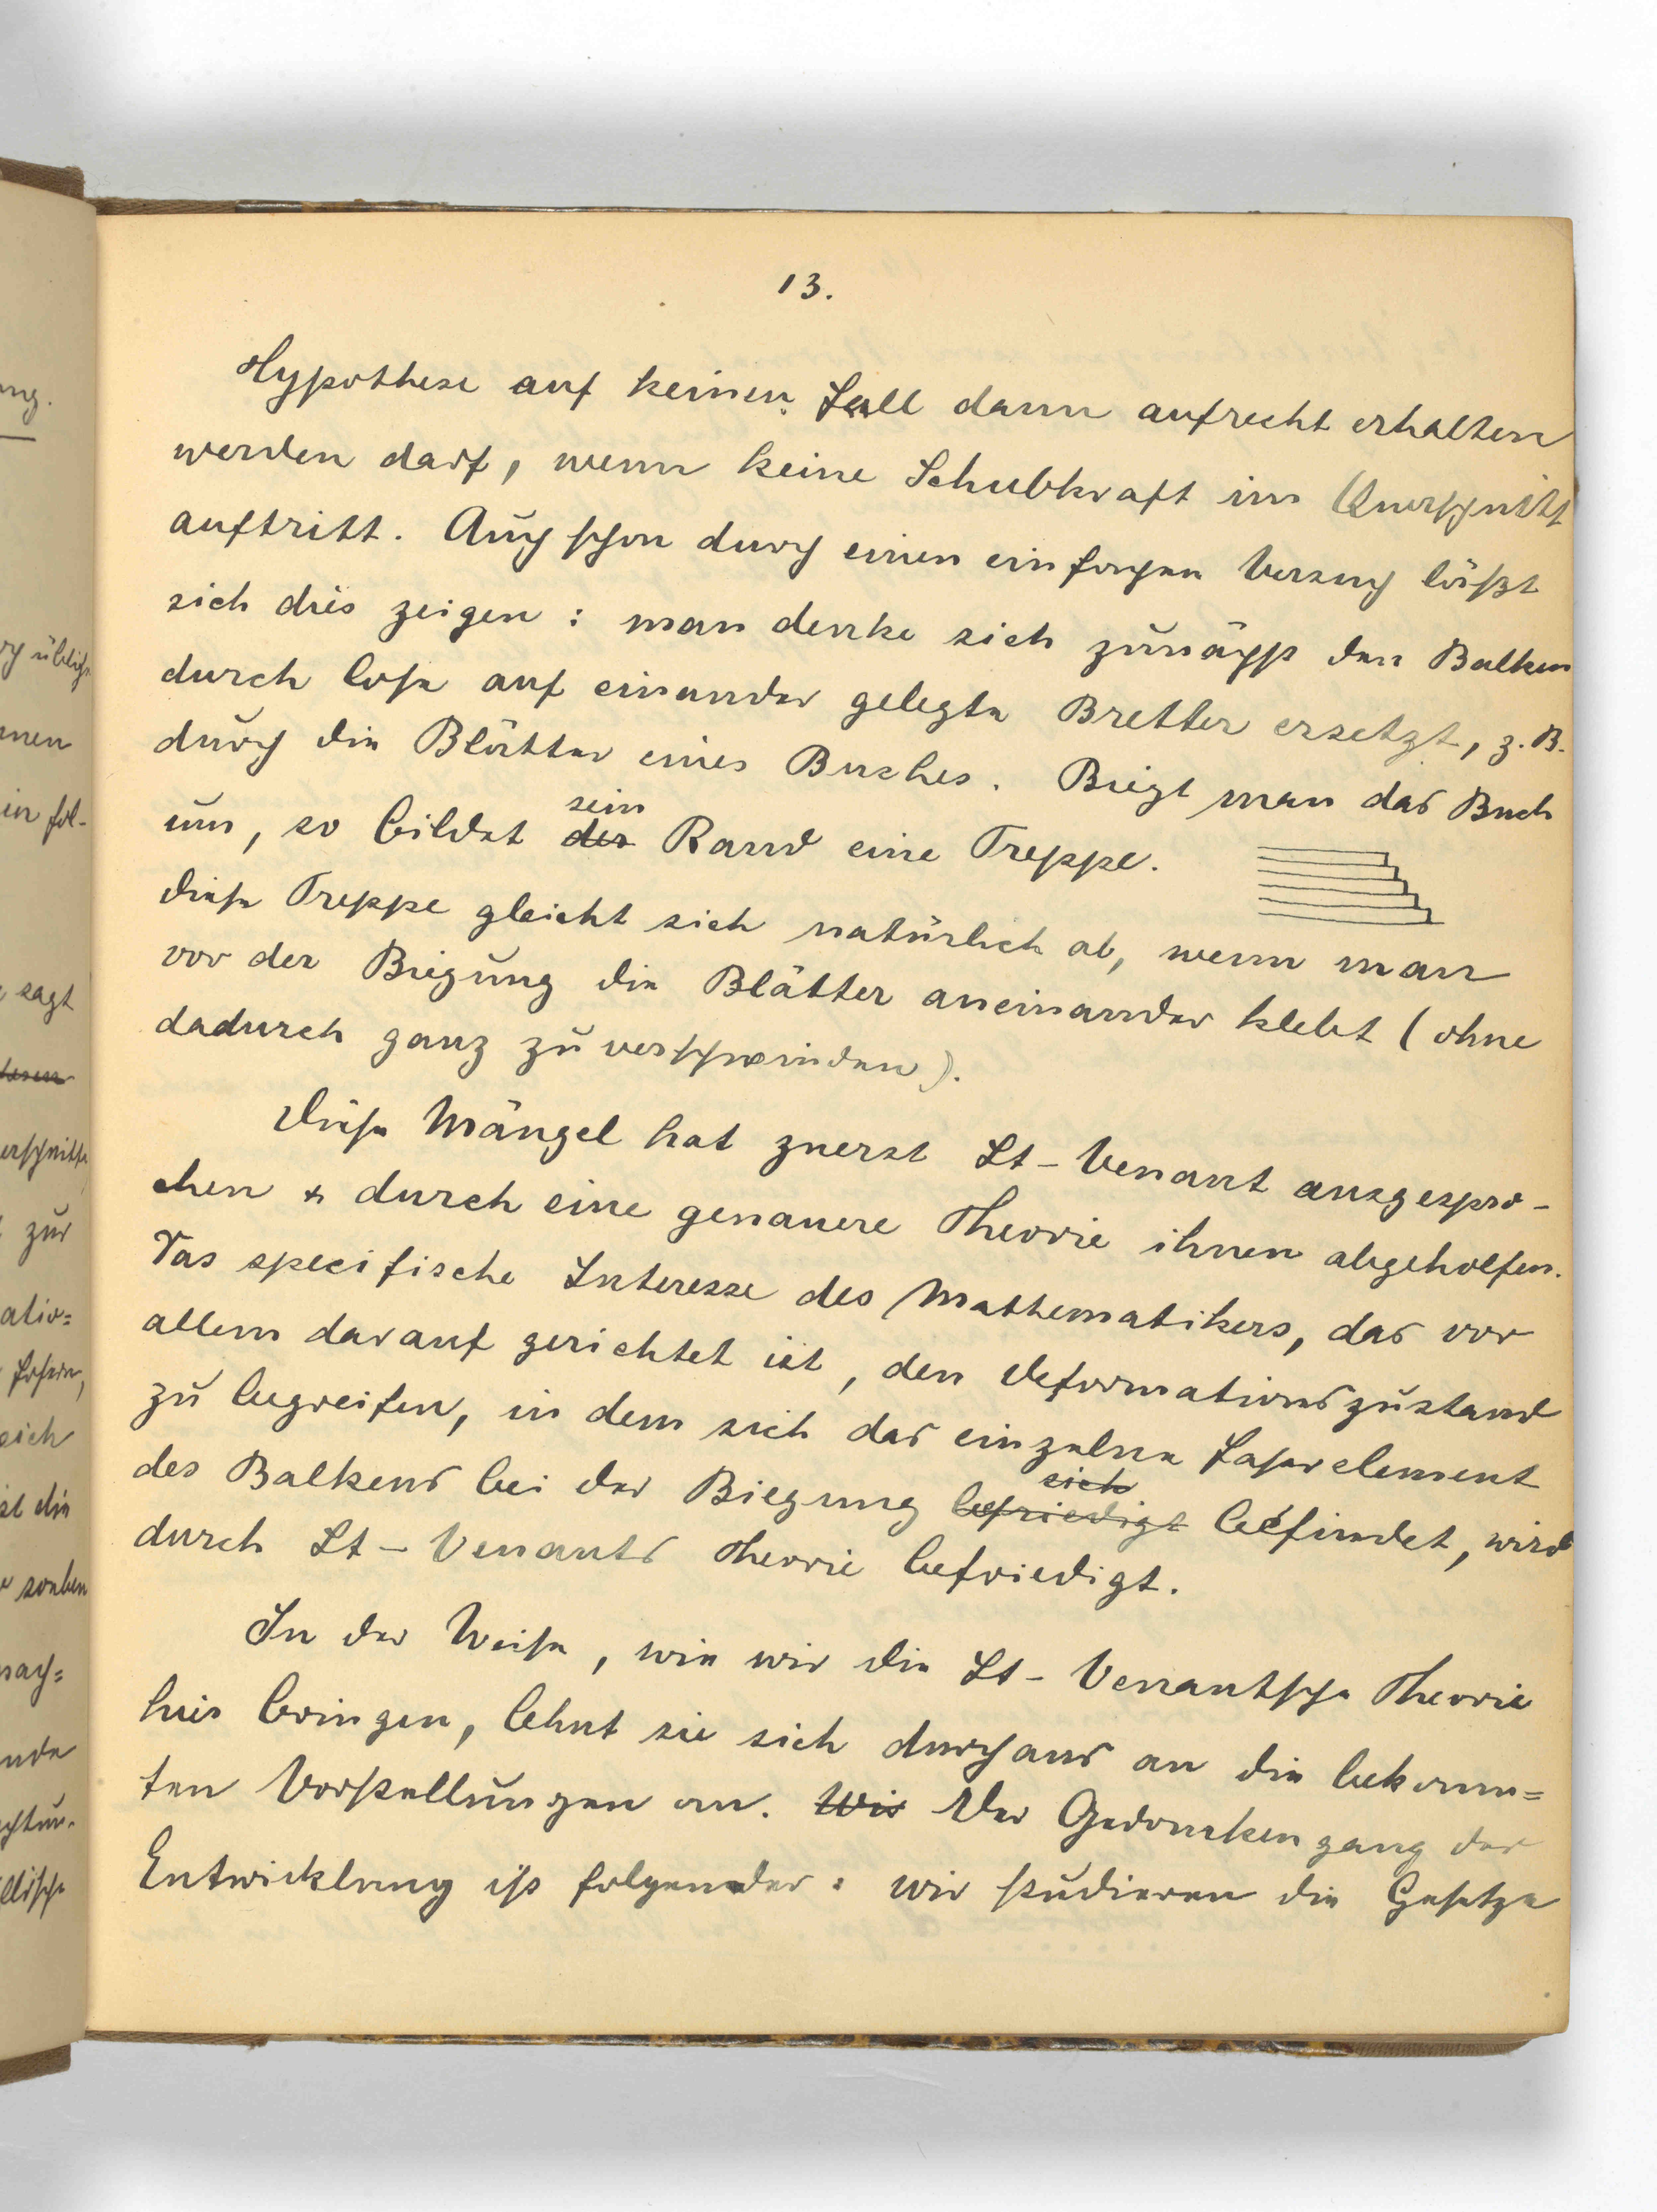 13.
Hypothese auf keinen Fall dann aufrecht erhalten
werden darf, wenn keine Schubkraft im Querschnitt
auftritt. Auch schon durch einen einfachen Versuch läßt
sich dies zeigen: man denke sich zunächst den Balken
durch lose auf einander gelegte Bretter ersetzt, z. B.
durch die Blätter eines Buches. Biegt man das Buch
um, so bildet der sein Rand eine Treppe.
diese Treppe gleicht sich natürlich ab, wenn man
vor der Biegung die Blätter aneinander klebt (ohne
dadurch ganz zu verschwinden).
Diese Mängel hat zuerst St-Venant ausgespro-
chen & durch eine genauere Theorie ihnen abgeholfen.
Das specifische Interesse des Mathematikers, das vor
allem darauf gerichtet ist, den Deformationszustand
zu begreifen, in dem sich das einzelne Faserelement
des Balkens bei der Biegung befriedigt sich befindet, wird
durch St-Venants Theorie befriedigt.
In der Weise, wie wir die St-Venantsche Theorie
hier bringen, lehnt sie sich durchaus an die bekann=
ten Vorstellungen an. Wir Der Gedankengang der
Entwicklung ist folgender: wir studieren die Gesetze
ng.
üblich
nen
in fol-
sagt
zur
atio=
sich
die
soeben
nach=